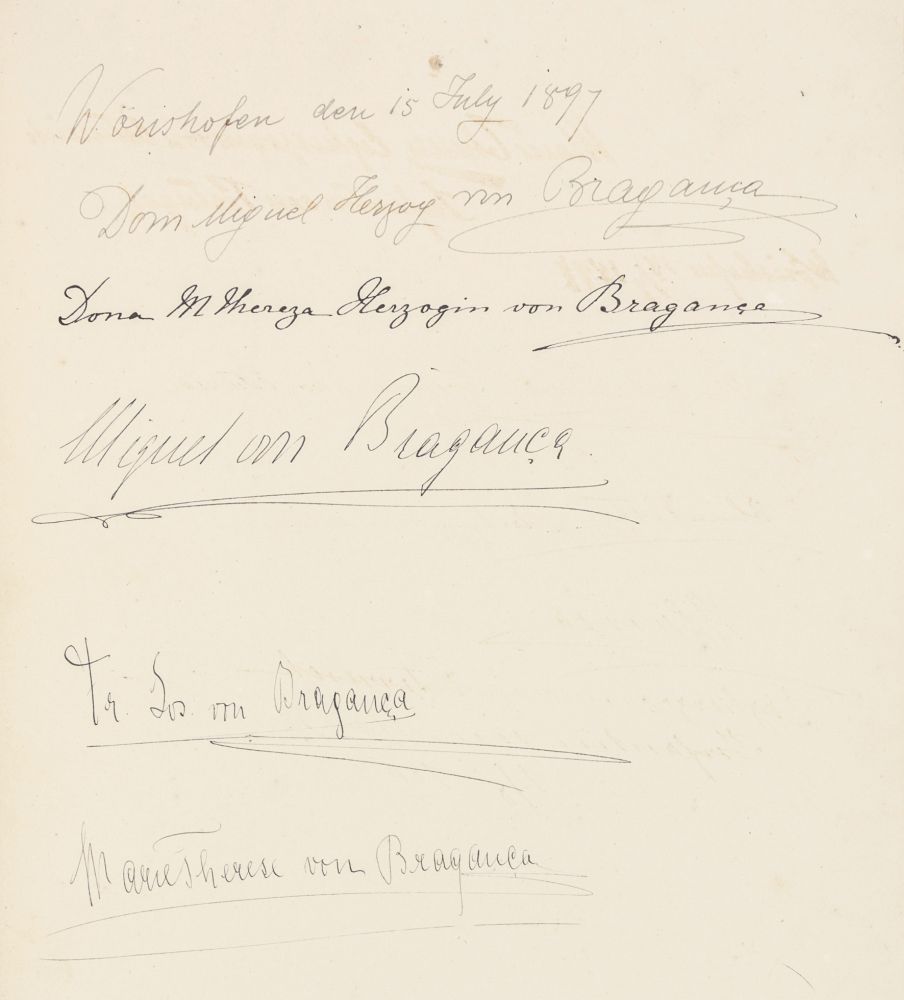 Wörishofen den 15 July 1897
Dom Miguel Herzog von Bragança
Dona M Thereza Herzogin von Bragança
Miguel von Bragança
Fr. Jos. von Bragança
Marie Therese von Bragança